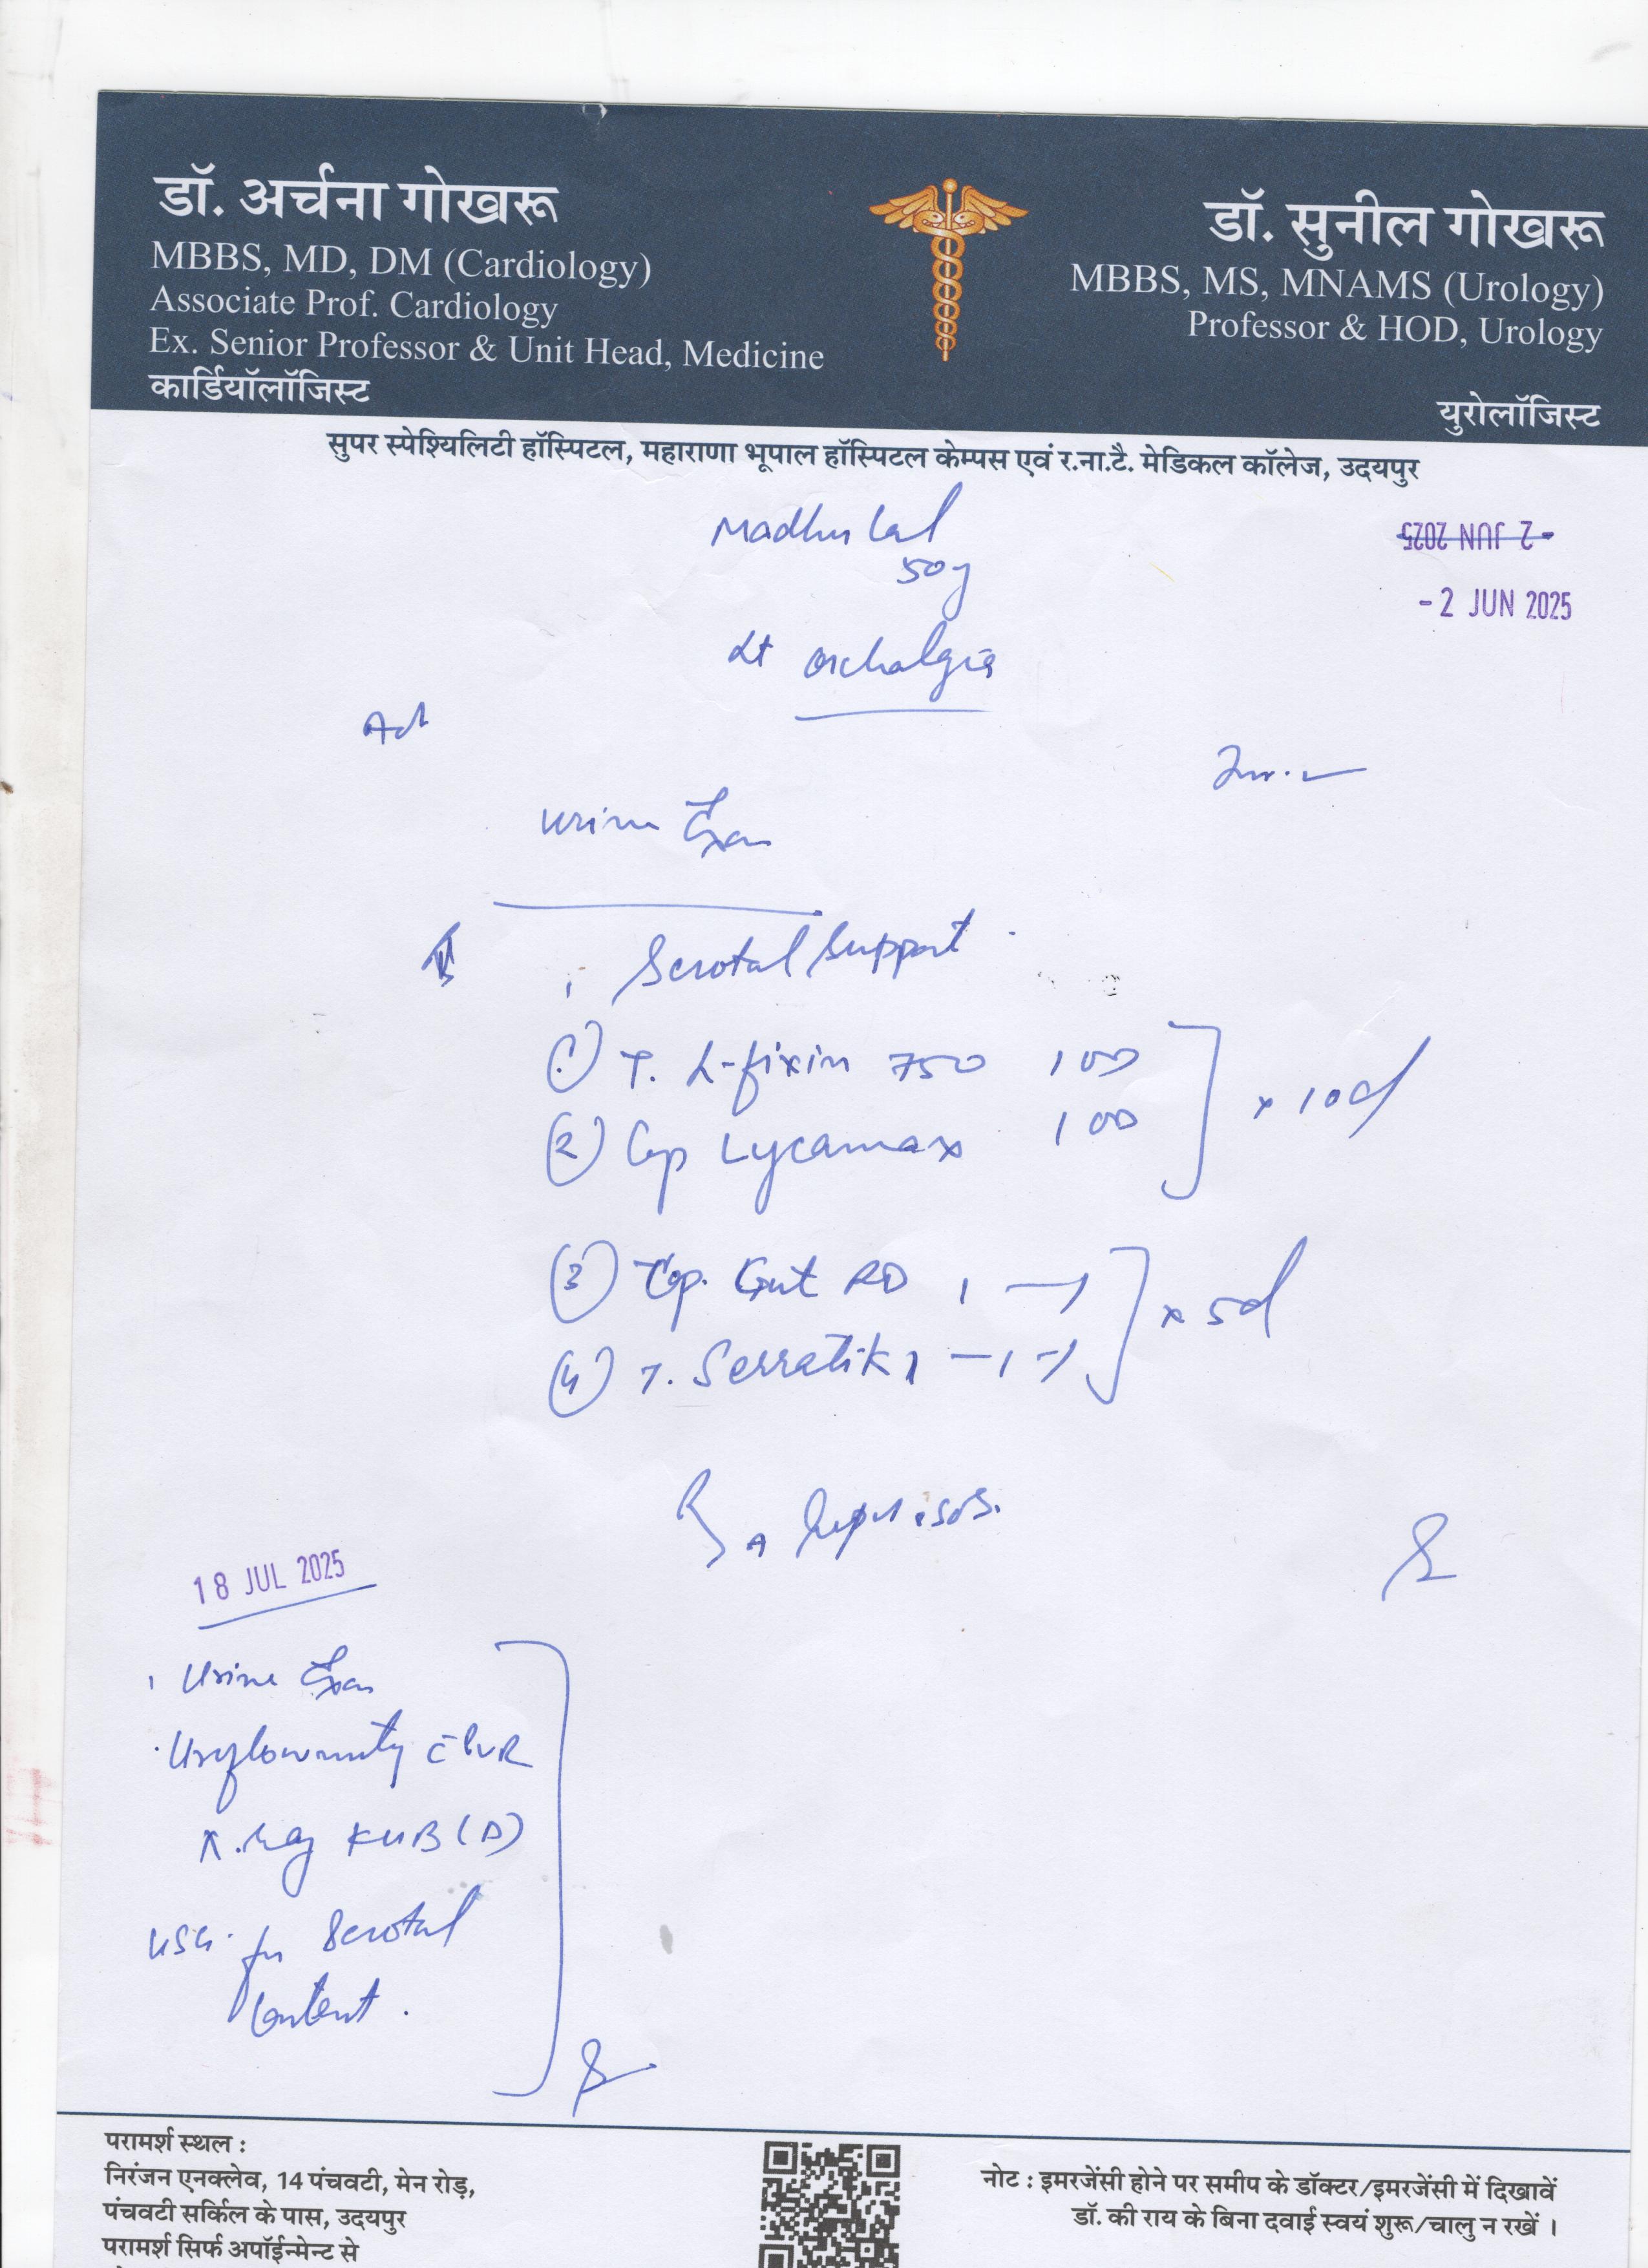 डॉ. अर्चना गोखरू
MBBS, MD, DM (Cardiology)
Associate Prof. Cardiology
Ex. Senior Professor & Unit Head, Medicine
कार्डियॉलॉजिस्ट
डॉ. सुनील गोखरू
MBBS, MS, MNAMS (Urology)
Professor & HOD, Urology
युरोलॉजिस्ट
सुपर स्पेश्यिलिटी हॉस्पिटल, महाराणा भूपाल हॉस्पिटल केम्पस एवं र.ना.टै. मेडिकल कॉलेज, उदयपुर
Madhu Lal
50y
-2 JUN 2025
-2 JUN 2025
Lt Orchalgia
Adv
Urine Exam
Scrotal Support
(1) T. L-fixin 750 1 OD
(2) Cap Lycamax 1 OD
] x 10d
(3) Cap. RD 1 — 1
(4) T. Serratik 1 — 1 — 1
] x 5d
18 JUL 2025
Urine Exam
Uroflowmetry c PVR
X.Ray KUB (D)
USG. for Scrotal
Content.
परामर्श स्थल :
निरंजन एनक्लेव, 14 पंचवटी, मेन रोड़,
पंचवटी सर्किल के पास, उदयपुर
परामर्श सिर्फ अपॉईन्मेन्ट से
नोट : इमरजेंसी होने पर समीप के डॉक्टर/इमरजेंसी में दिखावें
डॉ. की राय के बिना दवाई स्वयं शुरू/चालु न रखें ।